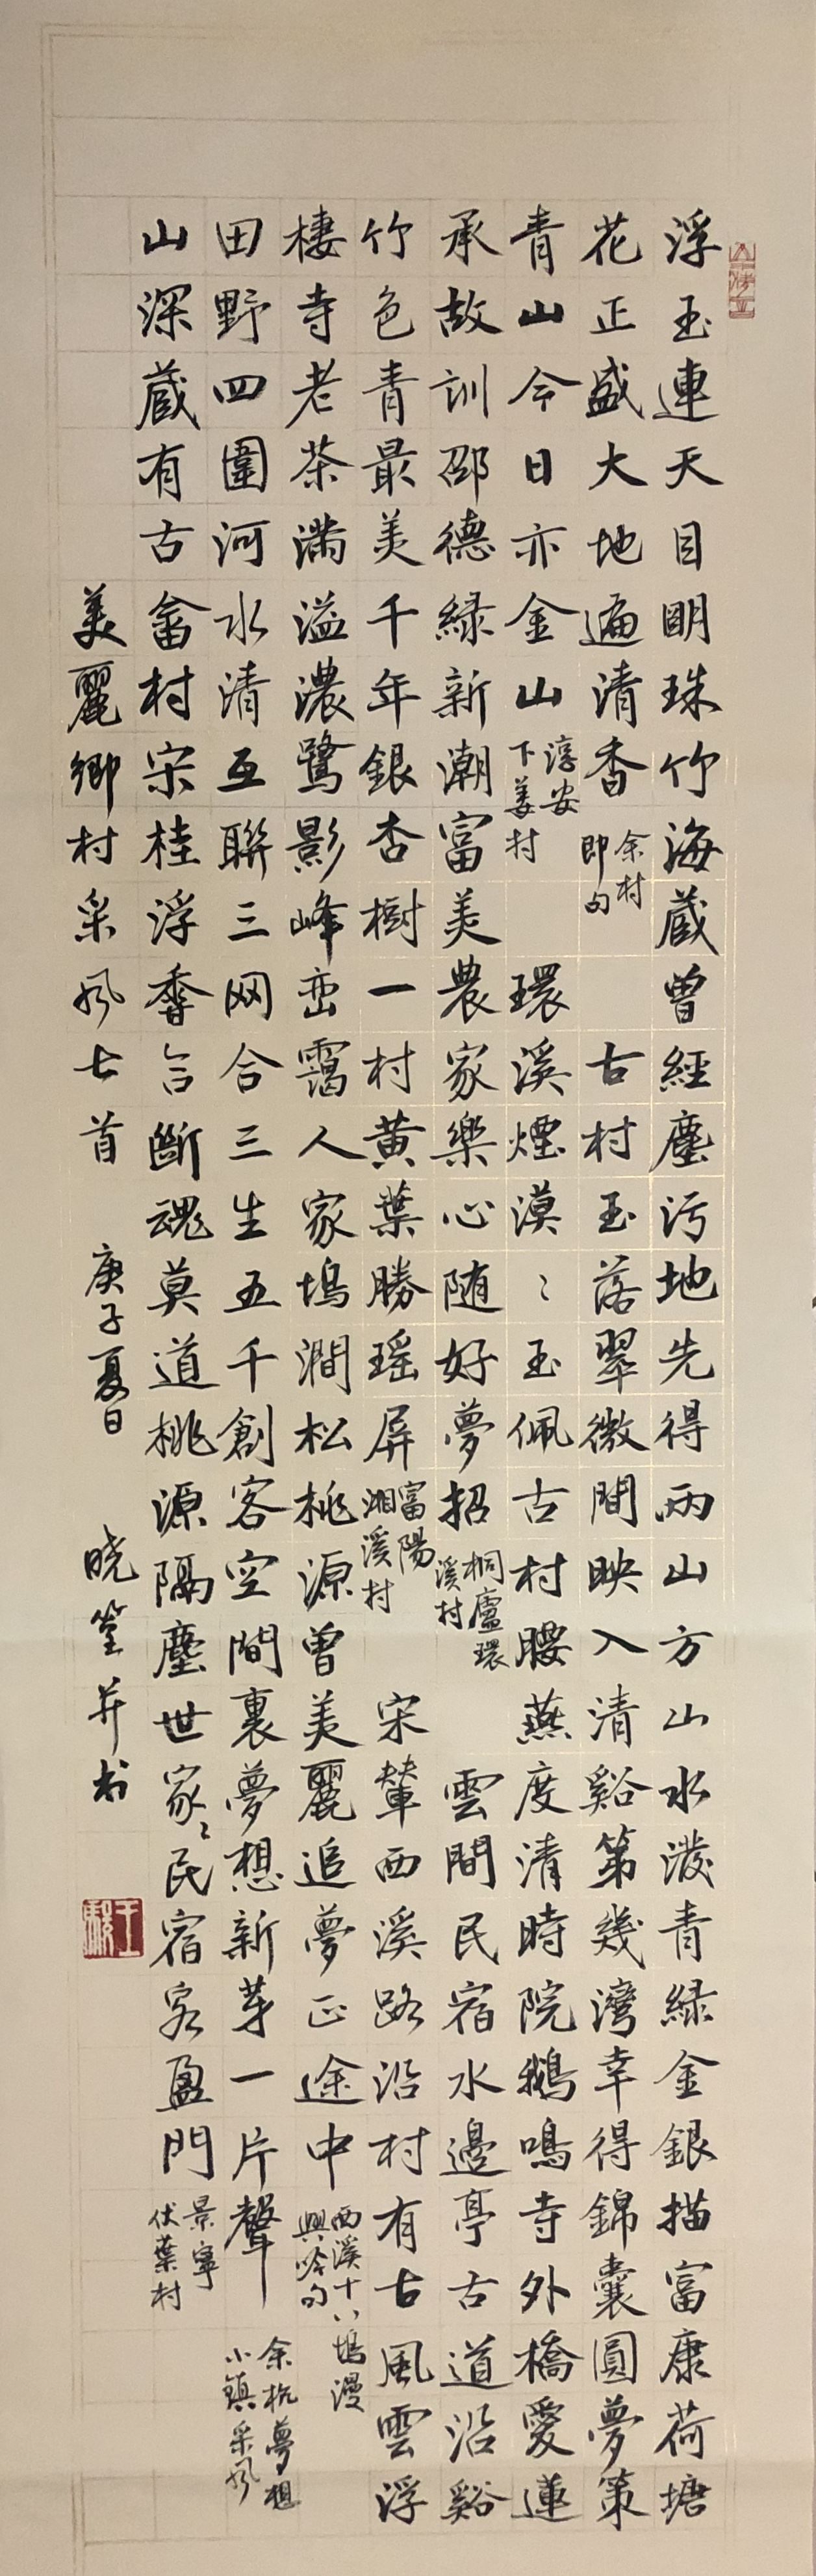 浮玉連天目明珠竹海蔵曾經塵污地先得兩山方山水潑青緑金銀描富康荷塘
花正盛大地遍清香 余村即句 古村玉落翠微間映入清谿第幾灣幸得錦囊圓夢策
青山今日亦金山 淳安下姜村 環溪煙漠〻玉佩古村腰燕度清時院鵝鳴寺外橋愛蓮
承故訓邵德緑新潮富美農家樂心随好夢招 桐廬環溪村 雲間民宿水邊亭古道沿谿
竹色青最美千年銀杏樹一村黄葉勝瑶屏 富陽湘溪村 宋輦西溪路沿村有古風雲浮
棲寺老茶滿溢濃鷺影峰巒靄人家塢澗松桃源曾美麗追夢正途中 西溪十八塢漫興吟句
田野四圍河水清互聯三网合三生五千創客空間裏夢想新芽一片聲 余杭夢想小鎮采風
山深蔵有古畲村宋桂浮香言斷魂莫道桃源隔塵世家〻民宿客盈門 景寧伏葉村
美麗鄉村采風七首 庚子夏日 晓篁并书